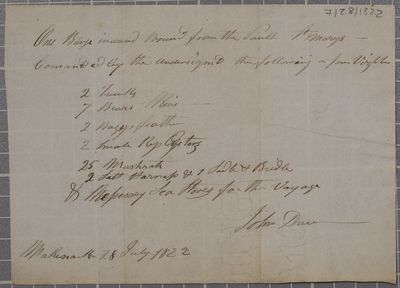 7/28/1822
One Barge inward Bound from the Sault St Marys —
Comanded by the undersigned the following is from
2 Trunks
7 Bears Skins —
2 Baggs Feathers
2 Small Kegs
25 Muskrats
2 Sett Harness & 1 Sadle & Bridle
& Nessessary Sea Stores for the Voyage
John Drew
Mackinack 28 July 1822